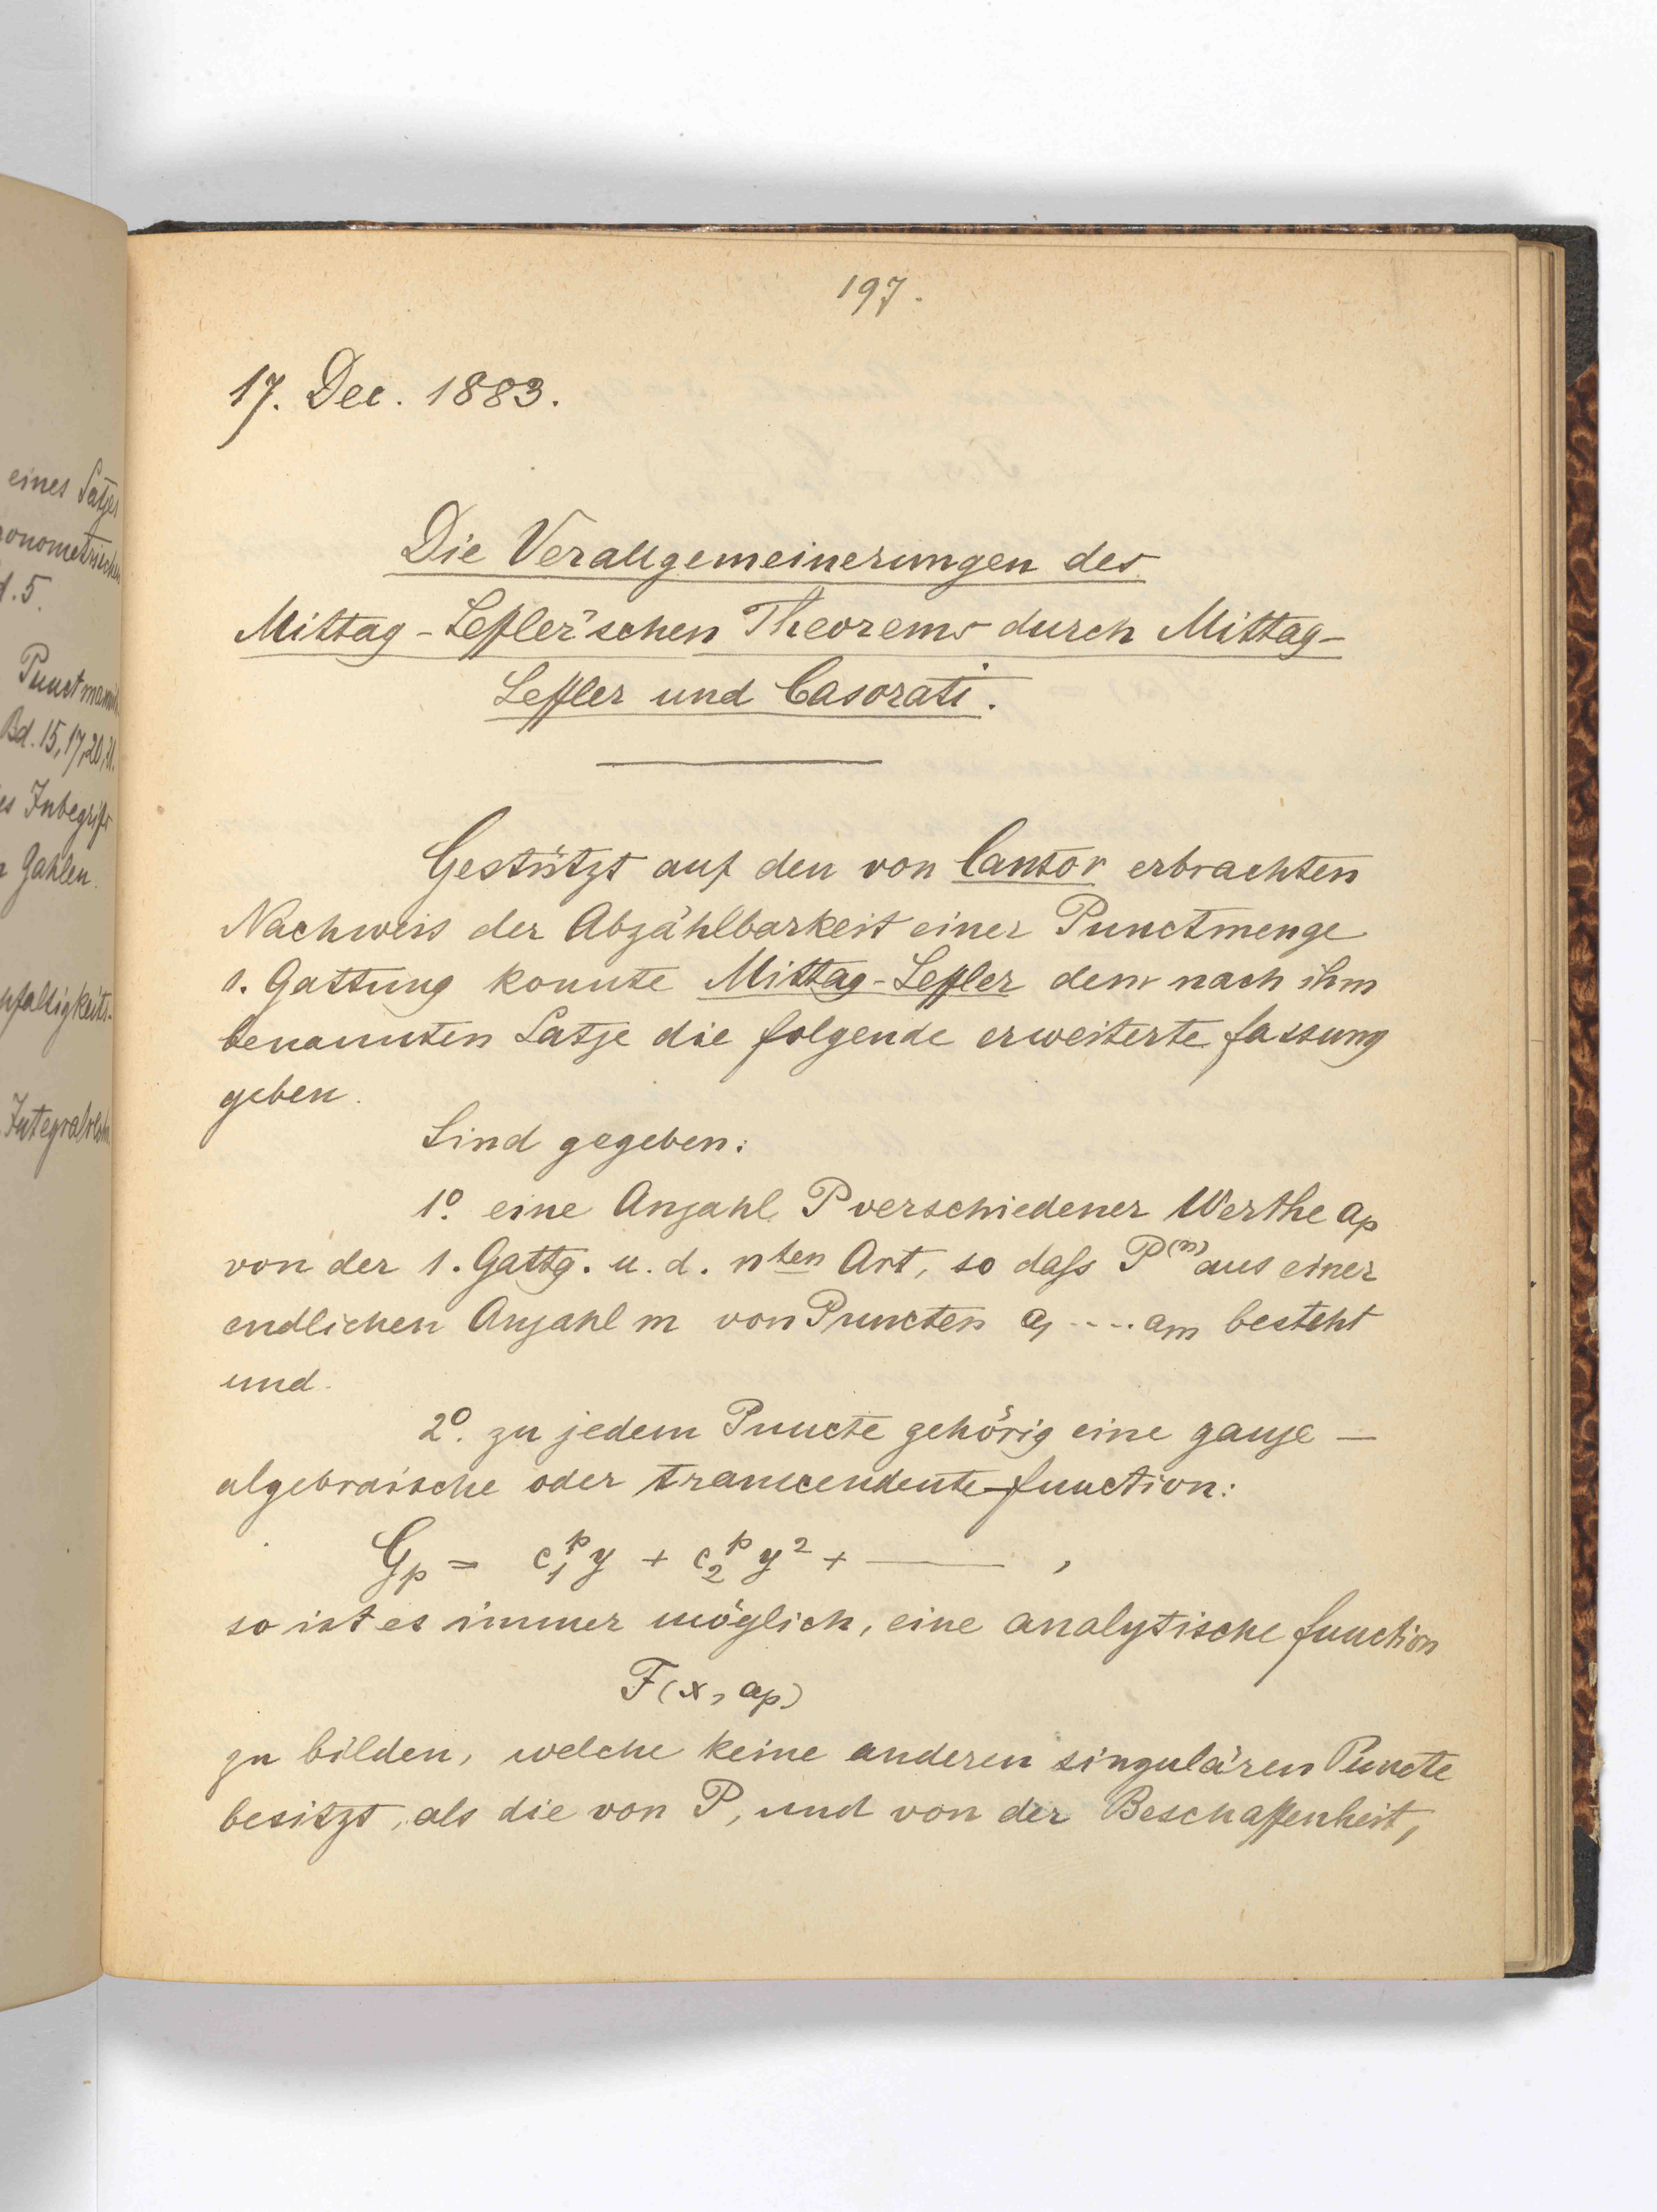 197.
17. Dec. 1883.
Die Verallgemeinerungen des
Mittag-Leffler'schen Theorems durch Mittag-
Leffler und Casorati.
Gestützt auf den von Cantor erbrachten
Nachweis der Abzählbarkeit einer Punctmenge
1. Gattung konnte Mittag-Leffler dem nach ihm
benannten Satze die folgende erweiterte Fassung
geben.
Sind gegeben:
1º. eine Anzahl P verschiedener Werthe ap
von der 1. Gattg. u. d. nten Art, so daſs P(n) aus einer
endlichen Anzahl m von Puncten a1 .... am besteht
und
2º. zu jedem Puncte gehörig eine ganze —
algebraische oder transcendente Function:
Gp = c1^p y + c2^p y² + ——— ,
so ist es immer möglich, eine analytische Function
F(x, ap)
zu bilden, welche keine anderen singulären Puncte
besitzt, als die von P, und von der Beschaffenheit,
eines Satzes
d. 5.
Bd. 15, 17, 20, 21.
es Inbegriffs
Zahlen.